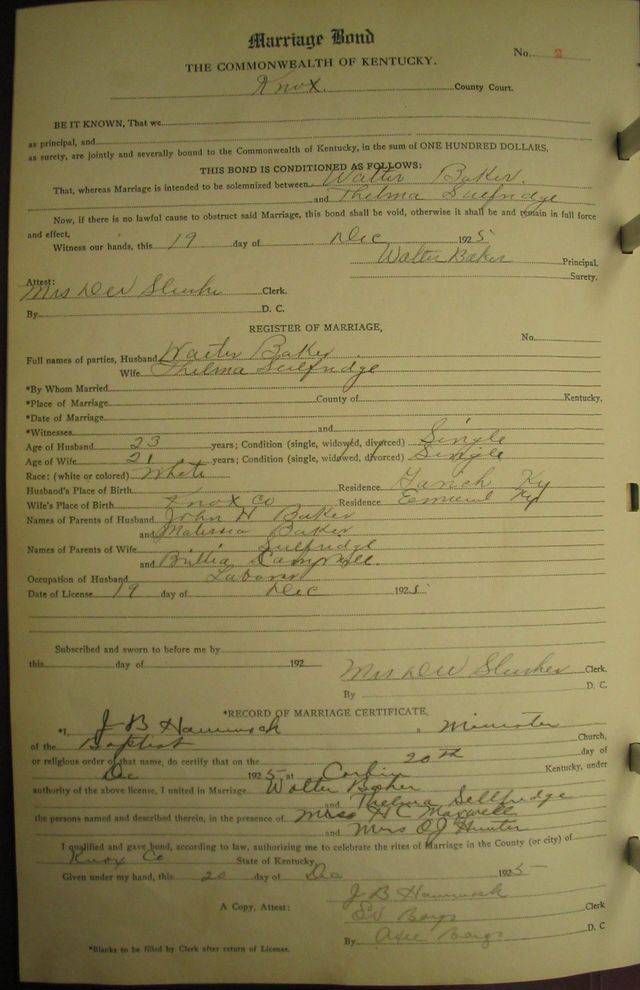 Marriage Bond
No. 2
THE COMMONWEALTH OF KENTUCKY.
Knox County Court.
BE IT KNOWN, That we
as principal, and
as surety, are jointly and severally bound to the Commonwealth of Kentucky, in the sum of ONE HUNDRED DOLLARS.
THIS BOND IS CONDITIONED AS FOLLOWS:
That, whereas Marriage is intended to be solemnized between Walter Baker.
and Thelma Sulfridge
Now, if there is no lawful cause to obstruct said Marriage, this bond shall be void, otherwise it shall be and remain in full force
and effect.
Witness our hands, this 19 day of Dec 1925
Walter Baker Principal.
Surety.
Attest:
Mrs D W Slusher Clerk.
By D. C.
REGISTER OF MARRIAGE.
No.
Full names of parties, Husband Walter Baker
Wife Thelma Sulfridge
*By Whom Married
*Place of Marriage County of Kentucky.
*Date of Marriage
*Witnesses and
Age of Husband 23 years; Condition (single, widowed, divorced) Single
Age of Wife 21 years; Condition (single, widowed, divorced) Single
Race: (white or colored) White
Husband's Place of Birth Residence Ky
Wife's Place of Birth Knox Co Residence Ky
Names of Parents of Husband John H Baker
and Baker
Names of Parents of Wife Sulfridge
and Campbell.
Occupation of Husband Laborer
Date of License 19 day of Dec 1925
Subscribed and sworn to before me by
this day of 192
Mrs D W Slusher Clerk.
By D. C.
*RECORD OF MARRIAGE CERTIFICATE.
*I, J B Hammock a Minister
of the Baptist Church,
or religious order of that name, do certify that on the 20th day of
Dec 1925 at Corbin Kentucky, under
authority of the above license, I united in Marriage Walter Baker
and Thelma Sellfridge
the persons named and described therein, in the presence of Miss H C Maxwell
and Mrs O J Hunter
I qualified and gave bond, according to law, authorizing me to celebrate the rites of Marriage in the County (or city) of
Knox Co State of Kentucky.
Given under my hand, this 20 day of Dec 1925
J B Hammock
A Copy, Attest: Clerk
By D. C
*Blanks to be filled by Clerk after return of License.